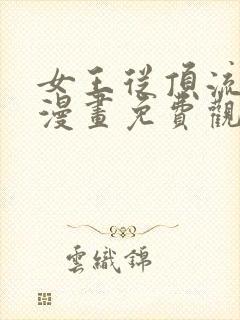 女王從頂流
漫畫免費觀
雲織錦